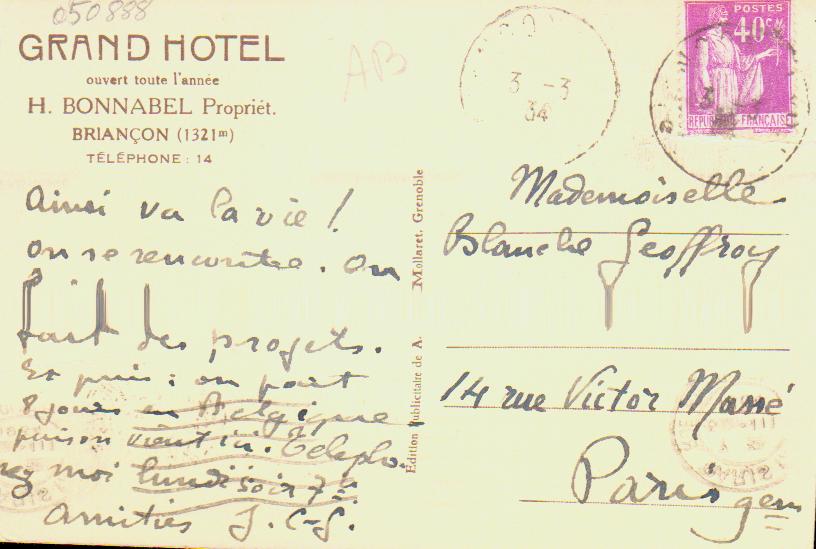 050888
GRAND HOTEL
ouvert toute l'année
H. BONNABEL Propriét.
BRIANÇON (1321m)
TÉLÉPHONE : 14
AB
Ainsi va la vie !
on se rencontre. on
fait des projets.
Et puis : on part
8 jours en Belgique
puis on vient ici. Télépho-
nez moi lundi soir 7h
Amitiés J. C-G.
Edition Publicitaire de A. Mollaret, Grenoble
3 -3
34
POSTES
40c
REPUBLIQUE FRANÇAISE
Mademoiselle
Blanche Geoffroy
14 rue Victor Massé
Paris 9em